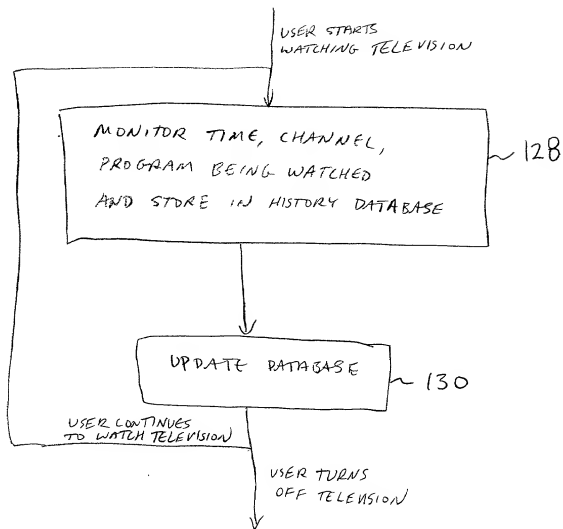 USER STARTS
WATCHING TELEVISION
MONITOR TIME, CHANNEL,
PROGRAM BEING WATCHED
AND STORE IN HISTORY DATABASE
128
UPDATE DATABASE
130
USER CONTINUES
TO WATCH TELEVISION
USER TURNS
OFF TELEVISION